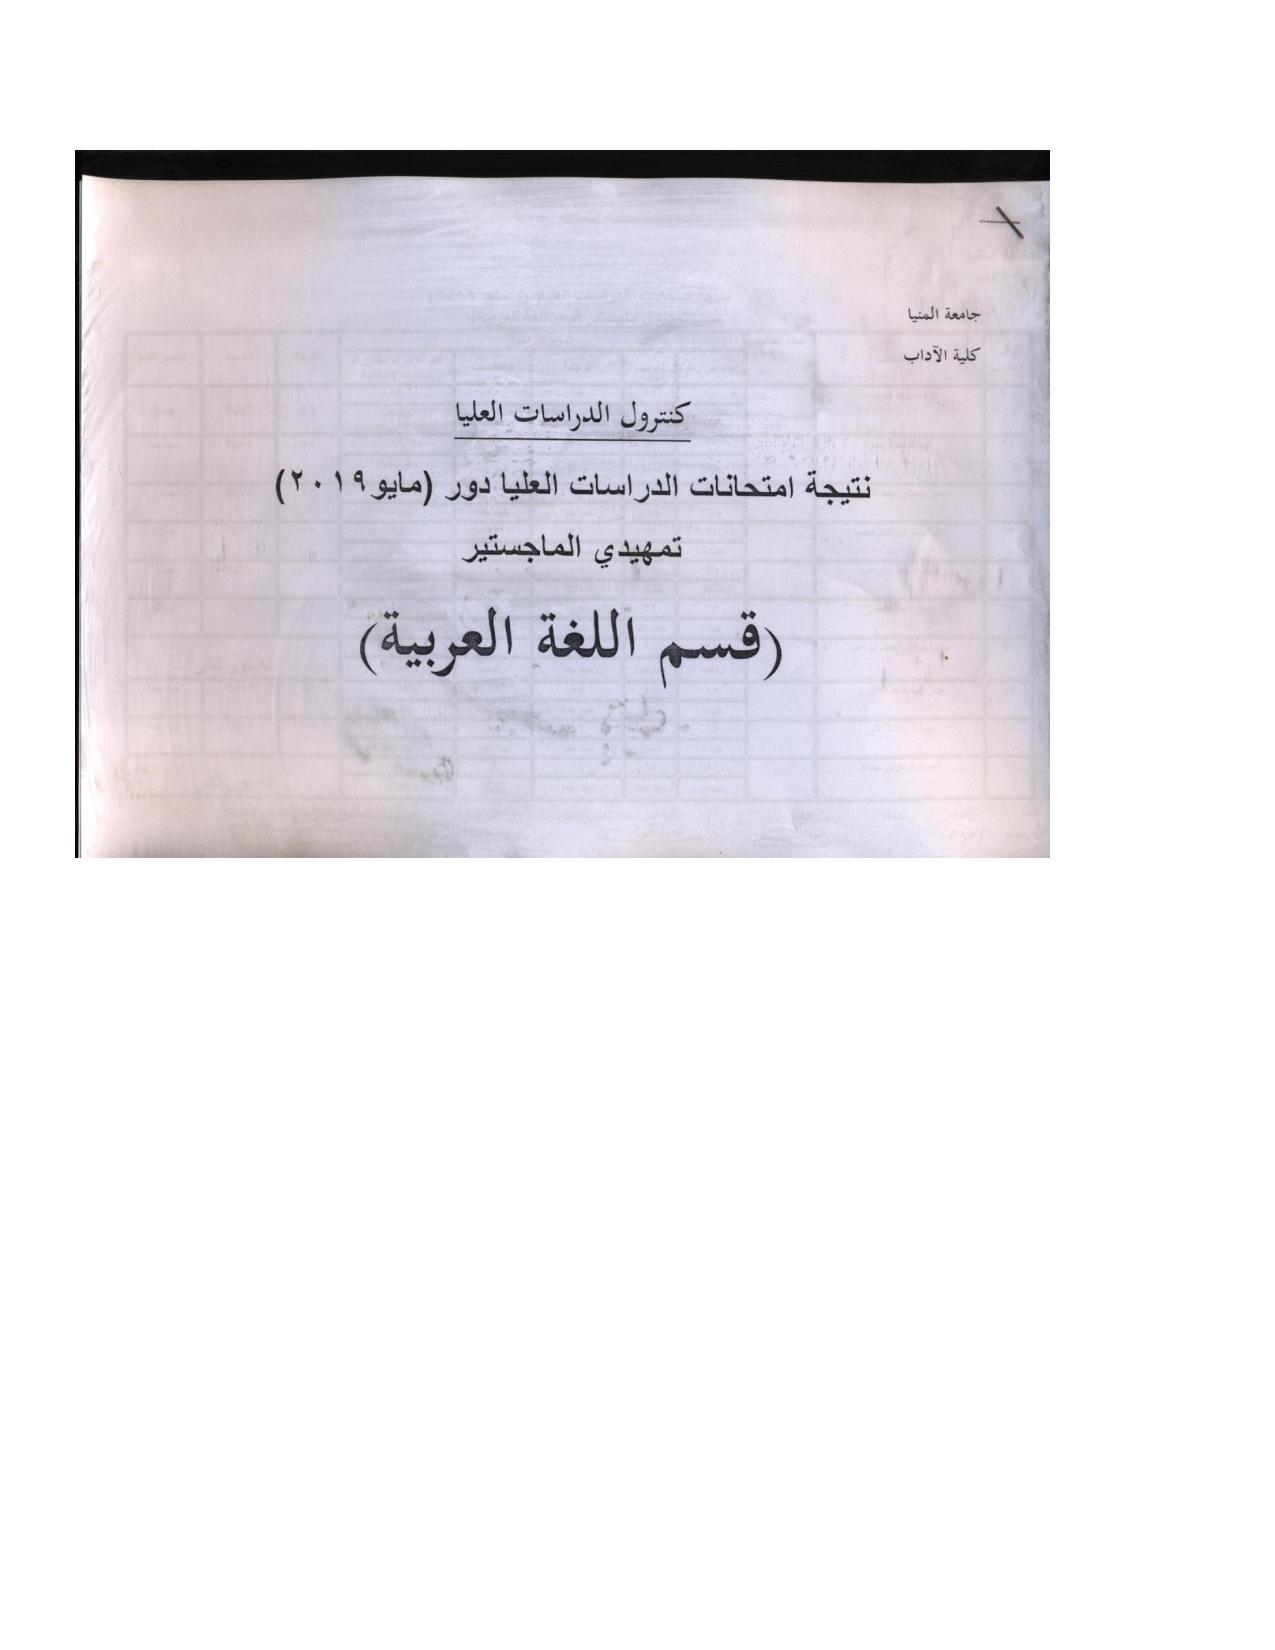 جامعة المنيا
كلية الآداب
كنترول الدراسات العليا
نتيجة امتحانات الدراسات العليا دور (مايو ٢٠١٩)
تمهيدي الماجستير
(قسم اللغة العربية)